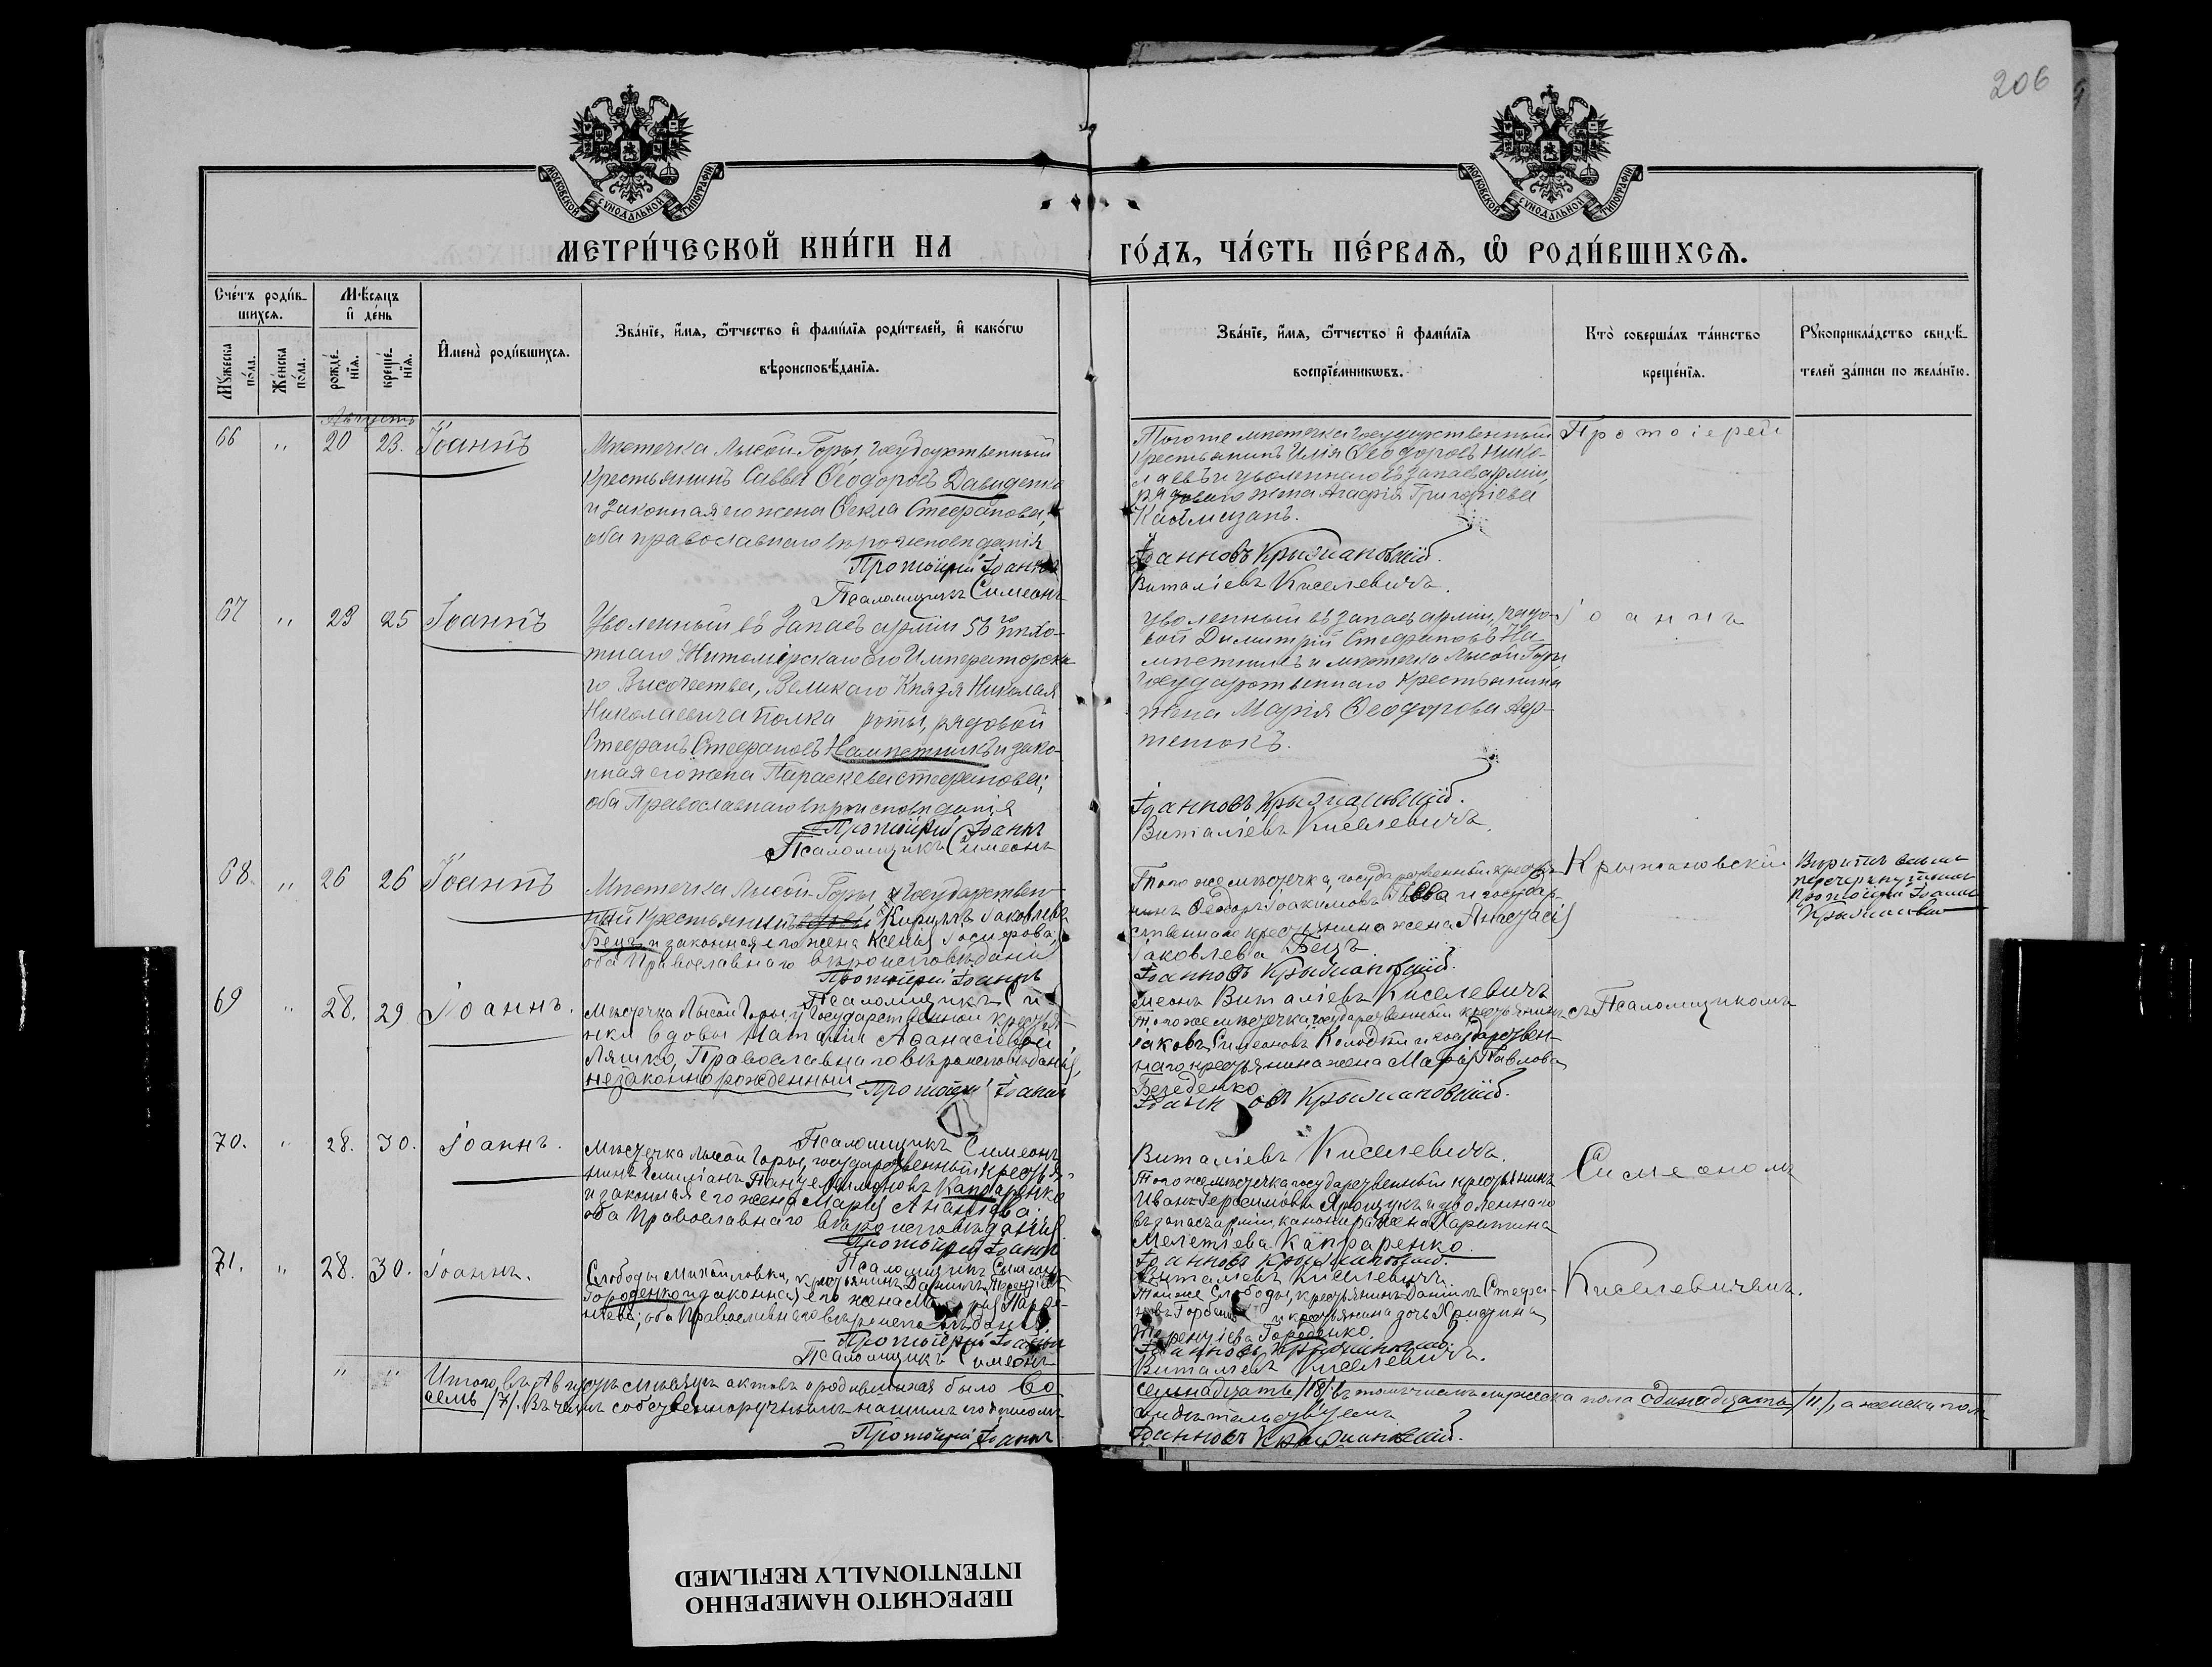 206
МОСКОВСКОЙ СУНОДАЛЬНОЙ ТИПОГРАФІИ
МОСКОВСКОЙ СУНОДАЛЬНОЙ ТИПОГРАФІИ
МЕТРИ́ЧЕСКОЙ КНИ́ГИ НА
ГО́ДЪ, ЧА́СТЬ ПЕ́РВАѦ, Ѡ҆ РОДИ́ВШИХСѦ.
Сче́тъ роди́в-
шихсѧ.
Мѣ́сѧцъ
и҆ де́нь
Мꙋжеска
по́ла.
Же́нска
по́ла.
рожде́-
нїѧ.
креще́-
нїѧ.
И҆мена̀ роди́вшихсѧ.
Зва́нїе, и҆́мѧ, ѻ҆́тчество и҆ фами́лїѧ роди́телей, и҆ како́гѡ
вѣроисповѣ́данїѧ.
Зва́нїе, и҆́мѧ, ѻ҆́тчество и҆ фами́лїѧ
воспрїе́мникѡвъ.
Кто̀ соверша́лъ та́инство
креще́нїѧ.
Рꙋкоприкла́дство свидѣ́-
телей за́писи по жела́нїю.
Августъ
66 " 20 23. Іоаннъ
Мѣстечка Лысой-Горы, государственный
крестьянинъ Савва Ѳеодоровъ Давиденко
и законная его жена Ѳекла Стефанова,
оба православнаго вѣроисповѣданія
Протоіерей Іоаннъ
Псаломщикъ Симеонъ
Тогоже мѣстечка государственный
крестьянинъ Илія Ѳеодоровъ Нико-
лаевъ и уволеннаго въ запасъ арміи,
рядового жена Агафія Григоріева
Іоанновъ Крыжановскій.
Виталіевъ Киселевичъ.
Протоіерей
67 " 23 25 Іоаннъ
Уволенный въ Запасъ арміи 56го пѣхо-
тнаго Житомірскаго Его Императорска-
го Высочества, Великаго Князя Николая
Николаевича полка роты, рядовой
Стефанъ Стефановъ Намѣстникъ и зако-
нная его жена Параскева Стефанова;
оба Православнаго вѣроисповѣданія
Протоіерей Іоаннъ
Псаломщикъ Симеонъ
Уволенный въ запасъ арміи, рядо-
вой Димитрій Стефановъ На-
мѣстникъ и мѣстечка Лысой Горы
Государственнаго крестьянина
жена Марія Ѳеодорова
Іоанновъ Крыжановскій.
Виталіевъ Киселевичъ.
Іоаннъ
68. " 26 26 Іоаннъ
Мѣстечка Лысой-Горы, Государствен-
ный крестьянинъ Кириллъ Іаковлевъ
Бецъ и законная его жена Ксенія Іосифова;
оба Православнаго вѣроисповѣданія
Протоіерей Іоаннъ
Псаломщикъ Си-
Того же мѣстечка, государственный крестья-
нинъ Ѳеодоръ Іоакимовъ и государ-
ственнаго крестьянина жена Анастасія
Іаковлева Бецъ
Іоанновъ Крыжановскій.
меонъ Виталіевъ Киселевичъ
Крыжановскій
перечеркнутому
Протоіерей Іоаннъ
Крыжановскій
69 " 28. 29 Іоаннъ.
Мѣстечка Лысой Горы, Государственной крестья-
нки вдовы Наталіи Аѳанасіевой
Ляшко, Православнаго вѣроисповѣданія,
незаконнорожденный
Протоіерей Іоаннъ
Псаломщикъ Симеонъ
Того же мѣстечка государственный крестьянинъ
Іаковъ Симеоновъ Колодій и государствен-
наго крестьянина жена Марія Павлова
Безеденко
Іоанновъ Крыжановскій.
Виталіевъ Киселевичъ.
съ Псаломщикомъ
70. " 28. 30. Іоаннъ.
Мѣстечка Лысой Горы, государственный крестья-
нинъ Емиліанъ Пантелеимоновъ Капфаренко
и законная его жена Марія Ананіева;
оба Православнаго вѣроисповѣданія
Протоіерей Іоаннъ
Псаломщикъ Симеонъ
Того же мѣстечка государственный крестьянинъ
Иванъ Герасимовъ Ярощукъ и уволеннаго
въ запасъ арміи, канонира жена Харитина
Мелетіева Капфаренко.
Іоанновъ Крыжановскій.
Виталіевъ Киселевичъ
Симеономъ
71. " 28. 30. Іоаннъ.
Слободы Михайловки, крестьянинъ Даніилъ Терентіевъ
Городенко и законная его жена Марія
оба Православнаго вѣроисповѣданія
Протоіерей Іоаннъ
Псаломщикъ Симеонъ
Тойже Слободы, крестьянинъ Даніилъ Стефа-
новъ и крестьянина дочь Христина
Терентіева Городенко.
Іоанновъ Крыжановскій.
Виталіевъ Киселевичъ.
Киселевичемъ.
" "
Итого въ Августѣ мѣсяцѣ актовъ о родившихся было Во-
семнадцать /18/, въ томъ числѣ мужеска пола одинадцать /11/, а женска пола
семь /7/. Въ чемъ собственноручнымъ нашимъ подписомъ
свидѣтельствуемъ
Протоіерей Іоаннъ
Іоанновъ Крыжановскій.
ПЕРЕСНЯТО НАМЕРЕННО
INTENTIONALLY REFILMED